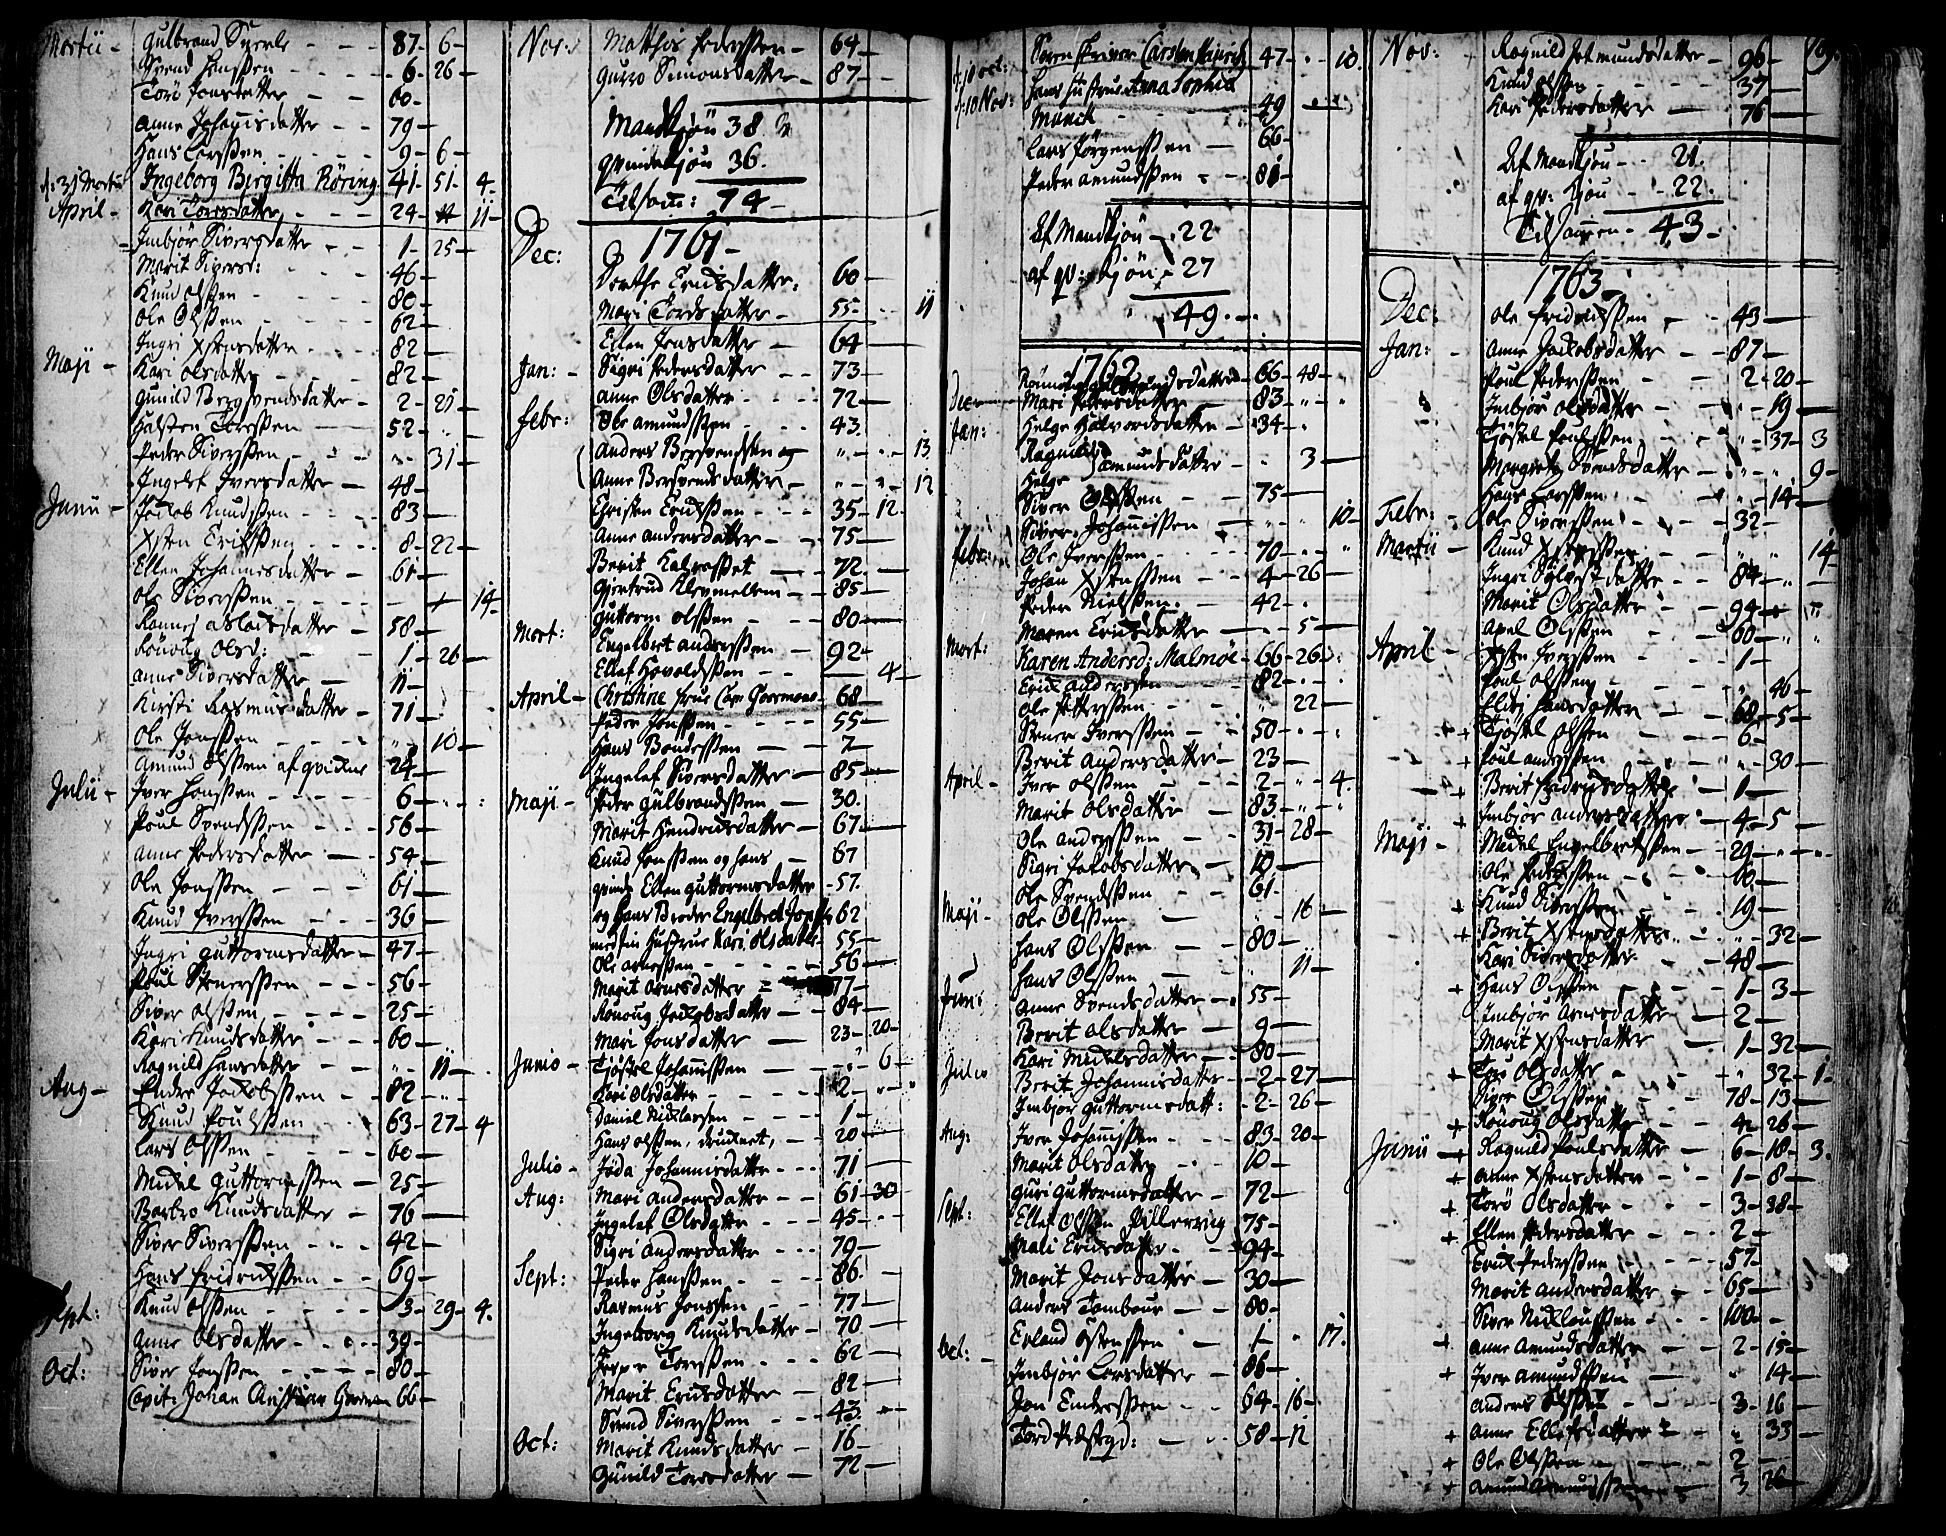 Martii - Gulbrand Sverls - - - 87 - 6 -
Svend Hansen - - - 6 - 26 -
Torö Jonsdatter - - 60 -
Anne Johannisdatter - - 79 -
Hans Larssen - - - 9 - 6 -
d: 31 Martii Ingeborg Birgitta Röring 41 - 51 - 4 -
April - Kari Torersdatter - - - 24 - 11 -
Imbjör Siversdatter - - - 1 - 25 -
Marit Siversd: - - - 46 -
Knud Olssen - - - 80 -
Ole Olssen - - - 62 -
Ingri Xstensdatter - - - 82 -
Maji - Kari Olsdatter - - - 82 -
Gunild Bergsvendsdatter - 2 - 21 -
Halsten Torssen - - 52 -
Peder Siverssen - - - 31 -
Ingelef Iversdatter - 48 -
Junii - Jacob Knudssen - - - 83 -
Xsten Erikssen - - - 8 - 22 -
Ellen Johannesdatter - 61 -
Ole Siverssen - - - 14 -
Ronnoj Aslacsdatter - 58 -
Rönoug Olsd: - - 1 - 26 -
Anne Siversdatter - - 11 -
Kirsti Rasmusdatter - 71 -
Ole Jonssen - - - 10 -
Amund Olssen af qvidne 24 -
Julii - Iver Hanssen - - - 6 -
Poul Svendssen - - - 56 -
Anne Pedersdatter - - 54 -
Ole Jonssen - - - 61 -
Knud Iverssen - - - 36 -
Ingri Guttormsdatter - 47 -
Poul Stenerssen - - - 56 -
Siver Olssen - - - 25 -
Kari Knudsdatter - 60 -
Ragnild Hansdatter - - 11 -
Aug - Endre Jacobssen - - 82 -
Knud Poulssen - - - 63 - 27 - 4
Lars Olssen - - - 60 -
Midel Guttormssen - 25 -
Barbro Knudsdatter - 76 -
Siver Siverssen - - - 42 -
Hans Fridricssen - - 69 -
Sept: Knud Olssen - - - 3 - 29 - 4.
Anne Olsdatter - - - 39 -
Oct: Siver Jonssen - - - 80 -
Capit: Johan Christian 66 -
Nov: Matthis Pederssen - 64 -
Gurro Simonsdatter - 87 -
Mandkjön 38
qvindekjön 36.
Tilsam: 74 -
1761 -
Dec: Dorthe Ericsdatter: 60 -
Mari Tordsdatter - 55 - 11
Ellen Jensdatter - 64 -
Jan: - Sigri Pedersdatter - - 73 -
Anne Olsdatter - - - 72 -
Febr: Ole Amundssen - - - 43.
Anders Bersvendsen og - 13
Anne Bersvendsdatter - 12
Christen Ericssen - - - 35 - 12 -
Anne Andersdatter - - 75 -
Berit - - 72 -
Gjertrud - - 85 -
Guttorm Olssen - - - 80 -
Mart: Engelbret Anderssen - 92 -
Ellef Hovoldssen - - 4 -
April - Christine 68 -
Peder Jonssen - - - 55 -
Hans Bendessen - - 7 -
Ingelef Siversdatter - 85 -
Maji - Peder Gulbrandssen - 30.
Marit Hendricsdatter - 67 -
Knud Jonssen og hans - 67
qvinde Ellen Guttormsdatter - 57.
og hans Broder Engelbret 62
med sin Hustrue Kari Olsdatter - 55 -
Ole Arnessen - - - 56 -
Marit Arnesdatter - 77 -
Rönoug Jacobsdatter - - 84 -
Mari Jonsdatter - - 23 - 20 -
Junio - Tjöstel Johannssen - - 6 -
Kari Olsdatter - - - 2 -
Daniel Niclassen - - 1 -
Hans Olssen, druknet, - - 20 -
Julio - Joda Johannisdatter - - - 71 -
Aug: Mari Andersdatter - - 61 - 30
Ingelef Olsdatter - - - 45 -
Sigri Andersdatter - - - 79 -
Sept: Peder Hanssen - - - 86.
Rasmus Jonssen - - - 77 -
Ingeborg Knudsdatter - 70 -
Torssen - - - 62 -
Marit Ericsdatter - - - 82 -
Svend Siverssen - - - 43.
Oct: Marit Knudsdatter - 16 -
Gunild Torersdatter - 72 -
d: 10 oct: Sorenskriver Carsten 47 - 10.
d: 10 Nov: hans Hustrue Anna Sophia
Munck - - 49
Lars Jörgenssen - - 66 -
Peder Amundssen - - 81 -
Af Mandkjön - 22
af qv: kjön - 27
49 -
1762
66 - 48 -
Dec - Mari Pedersdatter - 83 -
Jan: Helge Halvordsdatter - 34 -
Ragnild
Helge } Amundsdatter - 3 -
Siver Olssen - - 75 -
Siver Johannissen - 10 -
Febr: Ole Iverssen - - - 70 -
Johan Xstenssen - - 4 - 26 -
Peder Nielssen. - 42 -
Maren Ericsdatter - 5 -
Mart: Karen Andersd: Malmöe - 66 - 26 -
Eric Anderssen - - 82 -
Ole Petterssen - - 22 -
Stener Iverssen - - 50 -
Berit Andersdatter - 23 -
April - Iver Olssen - - 2 - 4.
Marit Olsdatter - 83 -
Ole Anderssen - - 31 - 28 -
Sigri Jacobsdatter - 10 -
Ole Svendssen - - 61 -
Maji - Ole Olssen - 16 -
Hans Olssen - - 80 -
Hans Olssen - 11 -
Juni Anne Svendsdatter - 55 -
Berit Olsdatter - 9 -
Kari Midelsdatter - 80 -
Julio Berit Johannisdatter - 2 - 27 -
Imbjör Guttormsdatt: - 2 - 26 -
Aug: Iver Johannissen - - - 83 - 20 -
Marit Olsdatter - - 10 -
Guri Guttormsdatter - 72 -
Sept: Ellef Olssen Pillerviig 75 -
Mali Ericsdatter - - 94 -
Marit Jonsdatter - 30 -
Anders Tambour - - 80 -
Oct: Erland Östenssen - 1 - 17.
Imbjör Larsdatter - 86 -
Jon Enderssen - - 64 - 16 -
Tord Præstgd: - - 58 - 12
Nov: Ragnild Asmundsdatter - 96 -
Knud Olssen - - 37 -
Kari Pedersdatter - 76 -
Af Mandkjön - - 21.
af qv: kjön - - 22.
Tilsammen - 43 -
1763 -
Dec: Ole Fridricssen - - 43 -
Jan: - Anne Jacobsdatter - - 87 -
Poul Pederssen - - 2 - 20 -
Imbjör Olsdatter - - 19 -
Tjöstel Poulssen - - 37 - 3
Margrete Svendsdatter - - 9 -
Hans Larssen - - 14 -
Febr: - Ole Siverssen - - - 32 -
Martii - Knud Xstenssen - - 14 -
Ingri datter - - 84 -
Marit Olsdatter - - 94 -
Apel Olssen - - 60 -
April - Xsten Iverssen - - 1 -
Poul Olssen - - 46 -
Eldri Hansdatter - - 68 - 5 -
+ Tjöstel Olssen - - 6 -
+ Poul Anderssen - - 30 -
+ Berit Fridricsdatter - 1 -
+ Imbjör Andersdatter - 4 - 5 -
Maji - Midel Engelbretssen - 29 -
Ole Pederssen - - 60 -
+ Knud Siverssen - - 19 -
+ Berit Xstensdatter - - 32 -
Kari Siversdatter - 48 -
+ Hans Olssen - - 1 - 3 -
Imbjör Arnesdatter - 2 -
Marit Xstensdatter - 1 - 32 -
+ Torö Olsdatter - - 32 - 1 -
Siver Olssen - - 78 - 13 -
+ Rönoug Olsdatter - - 42 26 -
Junii - + Ragnild Poulsdatter - 6 - 18 - 3.
+ Anne Xstensdatter - - 1 - 8 -
+ Torö Olsdatter - - - 3 - 38 -
+ Ellen Pedersdatter - - 2 -
Eric Pederssen - - 57 -
Marit Andersdatter - 65 -
Siver Niclaussen - - - 100 -
+ Anne Amundsdatter - 2 - 15 -
+ Iver Amundssen - 14 -
Anders Olssen - - 3 - 16 -
+ Anne Ellefsdatter - - 33 -
+ Ole Olssen - - 2 -
+ Amund Amundssen - 3 26 -